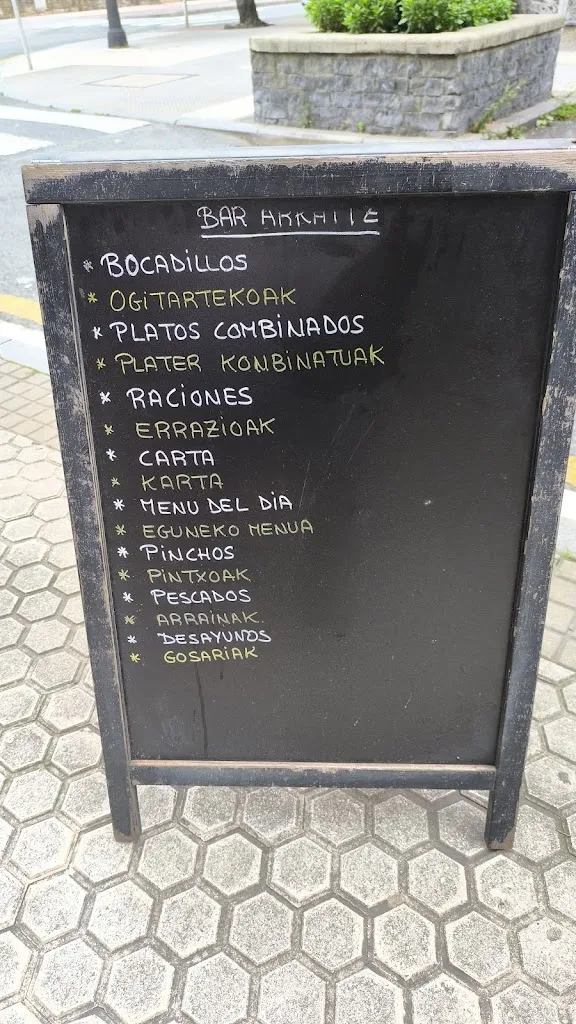 BAR
* BOCADILLOS
* OGITARTEKOAK
* PLATOS COMBINADOS
* PLATER KONBINATUAK
* RACIONES
* ERRAZIOAK
* CARTA
* KARTA
* MENU DEL DIA
* EGUNEKO MENUA
* PINCHOS
* PINTXOAK
* PESCADOS
* ARRAINAK.
* DESAYUNOS
* GOSARIAK